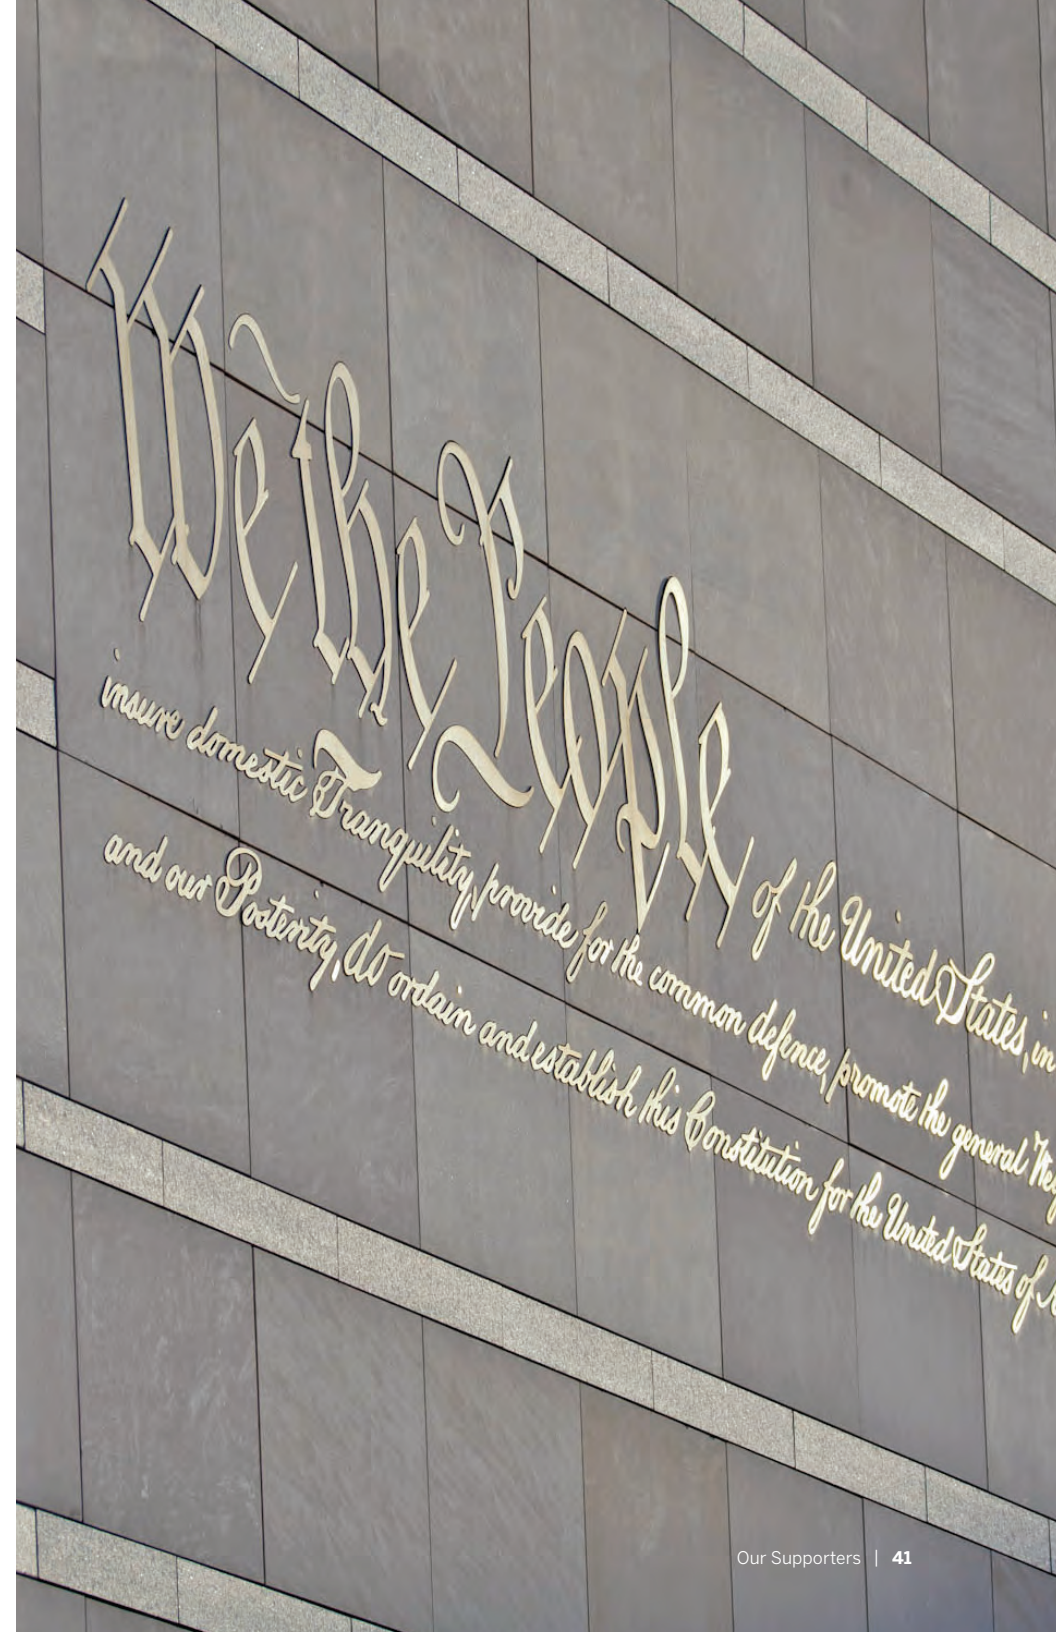 We the People of the United States, in
insure domestic Tranquility, provide for the common defence, promote the general We
and our Posterity, do ordain and establish this Constitution for the United States of A
Our Supporters | 41